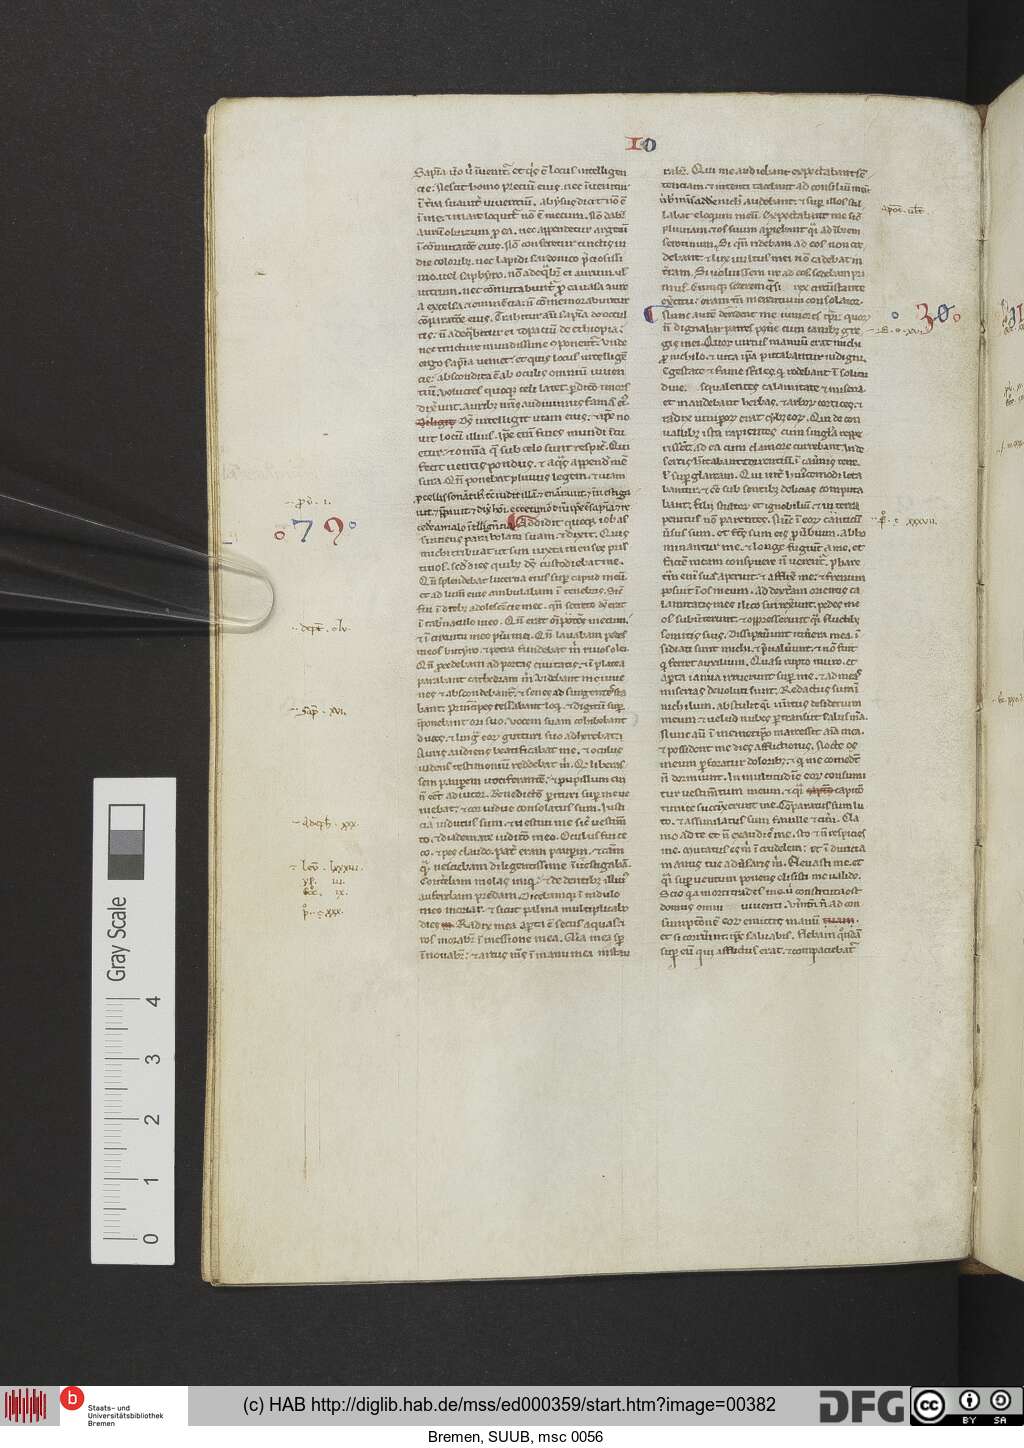 10
Sapīa ū ubi īuenit̄ et q̇s ē locus intelligen
cie. Nescit homo preciū eius. nec īuenitur
ī t̄ra suauit̄ uiuentiū. abẏssus dicit nō ē
ī me. et mare loquit̄ nō ē mecum. Nō dabit̄
aurū obrizum ꝓ ea. nec appendetur argentū
ī cōmutatōe eius. Nō conferetur tinctis in
die coloribȝ. nec lapidi sardonico p̄ciosissi
mo. uel saphẏro. nō adeq̄bit̄ ei aurum ul̄
uitrum. nec cōmutabunt̄ ꝓ ea uasa aure
a excelsa et eminētia. n̄ cōmemorabuntur
cōparatōe eius. Trahitur aūt sapīa de occul
tis. n̄ adeq̄bitur ei topaciū de ethiopia.
nec tincture mundissime cōponent̄. Vnde
ergo sapīa uenit. et quis locus intelligē
cie. abscondita ē ab oculis omniū uiuen
tiū. uolucres quoqȝ celi latet. ꝑditō et mors
dixerunt. auribȝ nr̄is audiuimus famā eiꝰ.
Ds̄ intelligit uiam eius. et ip̄e no
uit locū illius. Ip̄e enī fines mundi ītu
etur. et omīa q̄ sub celo sunt respic̄. Qui
fecit uentis pondus. et aq̄s append̄ mē
sura. Qn̄ ponebat pluuiis legem. et uiam
ꝓcellis sonātibꝰ. tē uidit illā. et enarrauit. et īuestiga
uit. et dix̄ hōi. ecce timor dn̄i ip̄e ē sapīa. et re
cedere a malo ītelligētia. Addidit quoqȝ iob as
sumens parabolam suam. et dixit. Quis
michi tribuat ut sim iuxta menses pris
tinos. scd̄m dies quibȝ ds̄ custodiebat me.
Qn̄ splendebat lucerna eius suꝑ capud meū.
et ad lum̄ eius ambulabam ī tenebris. Sic̄
fui ī diebȝ adolescēcie mee. qn̄ secreto ds̄ erat
ī tab̄naculo meo. Qn̄ erat oīpotēs mecum.
et ī circuitu meo pueri mei. Qn̄ lauabam pedes
meos butẏro. et petra fundebat m̄ riuos olei.
Qn̄ procedebam ad portas ciuitatis. et ī platea
parabant cathedram m̄. Videbant me iuue
nes et abscondebant̄. et senes adsurgentes sta
bant. Principes cessabant loqi. et digitū suꝑ
īponebant ori suo. uocem suam cohibebant
duces. et ligua eoꝝ gutturi suo adherebat.
Auris audiens beatificabat me. et oculus
uidens testimoniū reddebat m̄. Qd̄ liberas
sem pauperem uociferantē. et pupillum cui
n̄ eēt adiutor. Benedictō perituri suꝑ me ue
niebat. et cor uidue consolatus sum. Iusti
cia indutus sum. et uestiui me sic̄ uestim̄
to. et diademate iudicio meo. Oculus fui ce
co. et pes claudo. pat̄ eram pauꝑum. et cām
q̄ nesciebam diligentissime īuestigabā.
Conterebam molas iniq̇. et de dentibȝ illiꝰ
auferebam predam. Dicebamqȝ ī nidulo
meo moriar. et sicut palma multiplicabo
dies. Radix mea aꝑta ē secus aquas. et
ros morabit̄ ī messione mea. Gl̄ia mea sꝑ
īnouabit̄. et arcus ms̄ ī manu mea instau
rabit̄. Qui me audiebant expectabant sē
tenciam. et intenti tacebant ad consiliū meū.
Vb̄is meis addere nichil audebant. et suꝑ illos stil
labat eloquium meū. Expectabant me sic̄
pluuiam. et os suum aperiebant q̇si ad ībrem
serotinum. Si qn̄ ridebam ad eos non cre
debant. et lux uultus mei nō cadebat in
t̄ram. Si uoluissem ire ad eos sedebam pri
mus. Cumqȝ sederem q̇si rex circūstante
exercitu. eram tn̄ merentium consolator.
Nunc autē derident me iuniores tēpore. quoꝝ
n̄ dignabar patres ponere cum canibȝ gre
gis mei. Quoꝝ uirtus manuū erat michi
ꝓ nichilo. et uita ip̄a putabantur indigni.
Egestate et fame steriles. q̇ rodebant ī solitu
dine squalentes calamitate et miseria.
et mandebant herbas. et arboꝝ cortices. et
radix iuniꝑoꝝ erat cibus eoꝝ. Qui de con
uallibȝ ista rapientes cum singula reppe
rissent. ad ea cum clamore currebant. In de
sertis habitabant torrentiū. ī cauernis terre.
ul̄ suꝑ glaream. Qui inter hui̇̄comodi leta
bantur. et eē sub sentibȝ delicias computa
bant. filii stultoꝝ et ignobiliū. et in terra
penitus nō parentes. Nunc ī eoꝝ canticū
uersus sum. et factus sum eis ꝓuerbium. abho
minantur me. et longe fugiunt a me. et
faciē meam conspuere n̄ uerent̄. Phare
tram enī suā aperuit. et afflixit me. et frenum
posuit ī os meum. Ad dexteram orientis ca
lamitates mee ilico surrexerunt. pedes me
os subuerterunt. et oppresserunt q̇si fluctibȝ
semitis suis. Dissipauerunt itinera mea. ī
sidiati sunt michi. et p̄ualuerunt. et nō fuit
q̇ ferret auxilium. Quasi rupto muro. et
aꝑta ianua irruerunt suꝑ me. et ad meas
miserias deuoluti sunt. Redactus sum ī
nichilum. abstulit q̇si uentus desiderium
meum. et uelud nubes ꝑtransiit salus mea.
Nunc aūt ī memetipso marcessit aīa mea.
et possident me dies afflictionis. Nocte os
meum ꝑforatur doloribȝ. et q̇ me comedūt
n̄ dormiunt. In multitudine eoꝝ consumi
tur uestim̄tum meum. et q̇si capitō
tunice succinxerunt me. Cōparatus sum lu
to. et assimilatus sum fauille et cineri. Cla
mo ad te et n̄ exaudis me. sto et n̄ respicis
me. mutatus es m̄ ī crudelem. et ī duricia
manus tue aduersaris m̄. Eleuasti me. et
q̇si suꝑ uentum ponens elisisti me ualide.
Scio qa morti trades me. ubi constituta est
domus omni uiuenti. Vtn̄ n̄ ad con
sumptionē eoꝝ emittis manū
et si corruerint. ip̄e saluabis. Flebam q̇ndā
suꝑ eū qui afflictus erat. et compatiebat̄
79
30
Gray Scale
4
3
2
1
0
Staats- und
Universitätsbibliothek
Bremen
(c) HAB http://diglib.hab.de/mss/ed000359/start.htm?image=00382
DFG
cc
BY SA
Bremen, SUUB, msc 0056